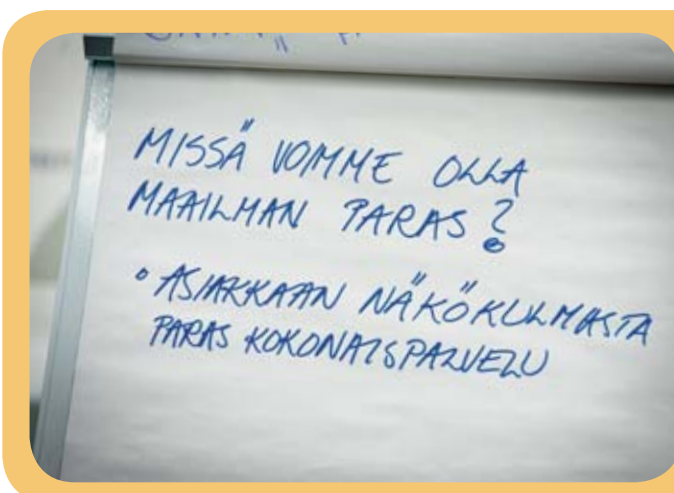 MISSÄ VOIMME OLLA
MAAILMAN PARAS?
• ASIAKKAAN NÄKÖKULMASTA
PARAS KOKONAISPALVELU